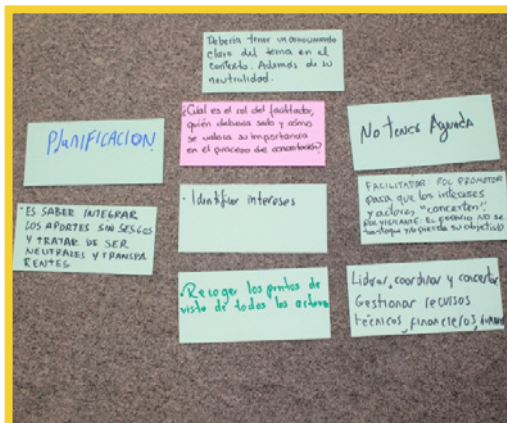 Debería tener un conocimiento
claro del tema en el
contexto. Además de su
neutralidad.
¿Cuál es el rol del facilitador,
quién debería serlo y cómo
se valora su importancia
en el proceso de concertación?
PLANIFICACION
No tener Agenda
· Identificar intereses
FACILITADOR: ROL PROMOTOR
para que los intereses
y actores, "concerten".
ROL VIGILANTE: EL proceso NO se
y no pierda su objetivo
· ES SABER INTEGRAR
LOS APORTES SIN SESGOS
Y TRATAR DE SER
NEUTRALES Y TRANSPA
RENTES
· Recoger los puntos de
vista de todos los actores
Liderar, coordinar y concertar
Gestionar recursos
técnicos, financieros,